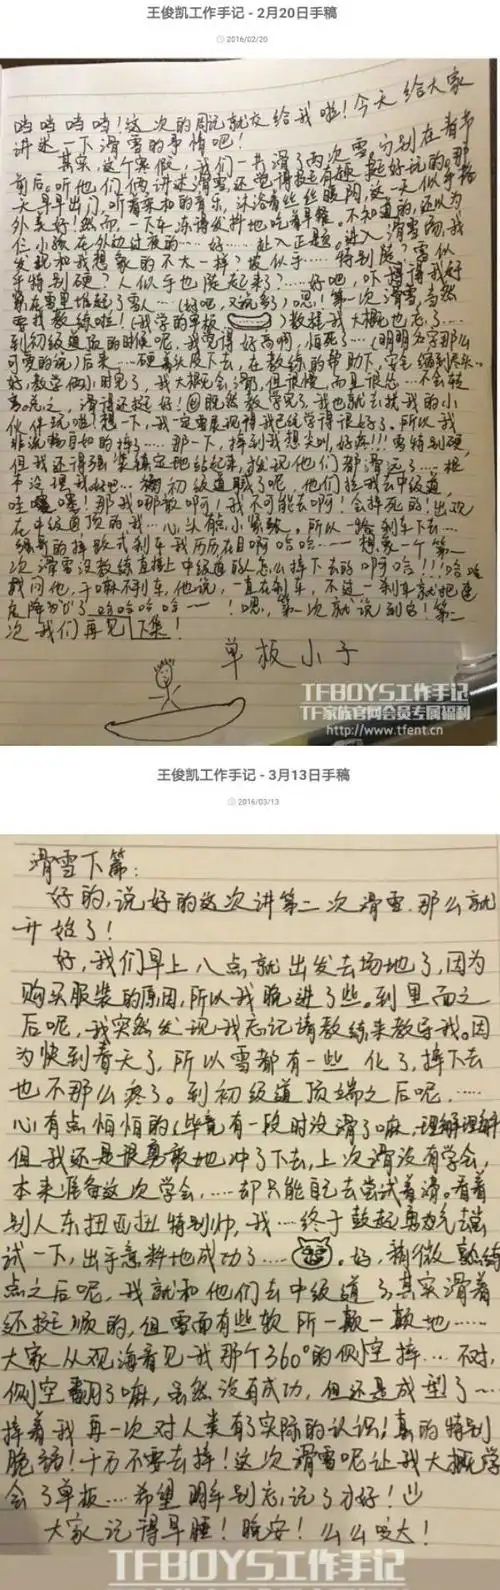 王俊凯工作手记 - 2月20日手稿
2016/02/20
当当当当!这次的周记就交给我啦!今天给大家
讲述一下滑雪的事情吧!
其实,这个寒假,我们一共滑了两次雪,分别在春节
前后。听他们俩讲述滑雪,还觉得挺有
天早早出门,听着柔和的音乐,沐浴着丝丝暖阳,这一天似乎格
外美好!然而,一下车,冻得发抖地吃着早餐。不知道的,还以为
仨小孩在外边过夜的……好……赴入正题。进入滑雪场,我
发现和我想象的不太一样?坡似乎……特别陡?雪似
乎特别硬?人似乎也陡起来了?……好吧,吓得我好
(好吧,又玩多了)嗯!第一次滑雪,当然
要找教练啦!(我学的单板)教练我大概也忘了……
到初级道顶的时候呢,我觉得好高啊,怕死了…(明明名字那么
可爱的说)后来…硬着头皮下去,在教练的帮助下,安全
好,教学俩小时完了,我大概会滑,但很慢,而且很怂…不会转
弯。总之,滑得还挺好!既然教学完了,我也就去找我的小
伙伴玩啦!想一下,我一定要展现得我已经学得很好了。所以我
非流畅自如的摔了……那一下,摔到我想尖叫,好疼!!!雪特别硬,
但我还得强装镇定地站起来,发现他们都滑远了……根
本没理我
初级道腻了呢,他们拉我去中级道,
哇噻噻!那我哪敢啊!我不可能去啊!会摔死的!出现
在中级道顶的我…心头有点小紧张。所以一路刹车下去……
的摔跤式刹车我历历在目啊哈哈……想象一个第一
次滑雪没教练直接上中级道的怎么摔下去的啊哈!!!哈哈
我问他,干嘛不刹车,他说,一直在刹车,不过一刹车就把速
哈哈哈哈——!嗯,第一次就说到它!第二
次我们再见下集!
单板小子
TFBOYS工作手记
TF家族官网会员专属福利
http://www.tfent.cn
王俊凯工作手记 - 3月13日手稿
2016/03/13
滑雪下篇:
好的,说好的这次讲第二次滑雪.那么就
开始了!
好,我们早上八点就出发去场地了,因为
购买服装的原因,所以我晚进了些。到里面之
后呢,我突然发现我忘记请教练来教导我。因
为快到春天了,所以雪都有一些化了,摔下去
也不那么疼了。到初级道顶端之后呢,……
心有点怕怕的(毕竟有一段时没滑了嘛,理解理解
但我还是很勇敢地冲了下去,上次滑没有学会,
本来准备这次学会,……却只能自己去尝试着滑。看着
别人东扭西扭特别帅,我…终于鼓起勇气去尝
试一下,出乎意料地成功了……。好,稍微熟练
点之后呢,我就和他们去中级道了,其实滑着
还挺顺的,但雪面有些软所一颠一颠地……
大家从观海看见我那个360°的侧空摔…不对,
侧空翻了嘛,虽然没有成功,但还是成型了~
摔着我再一次对人类有了实际的认识!真的特别
脆弱!千万不要去摔!这次滑雪呢让我大概学
会了单板…希望明年别忘记了才好!
大家记得早睡!晚安!么么哒大!
TFBOYS工作手记